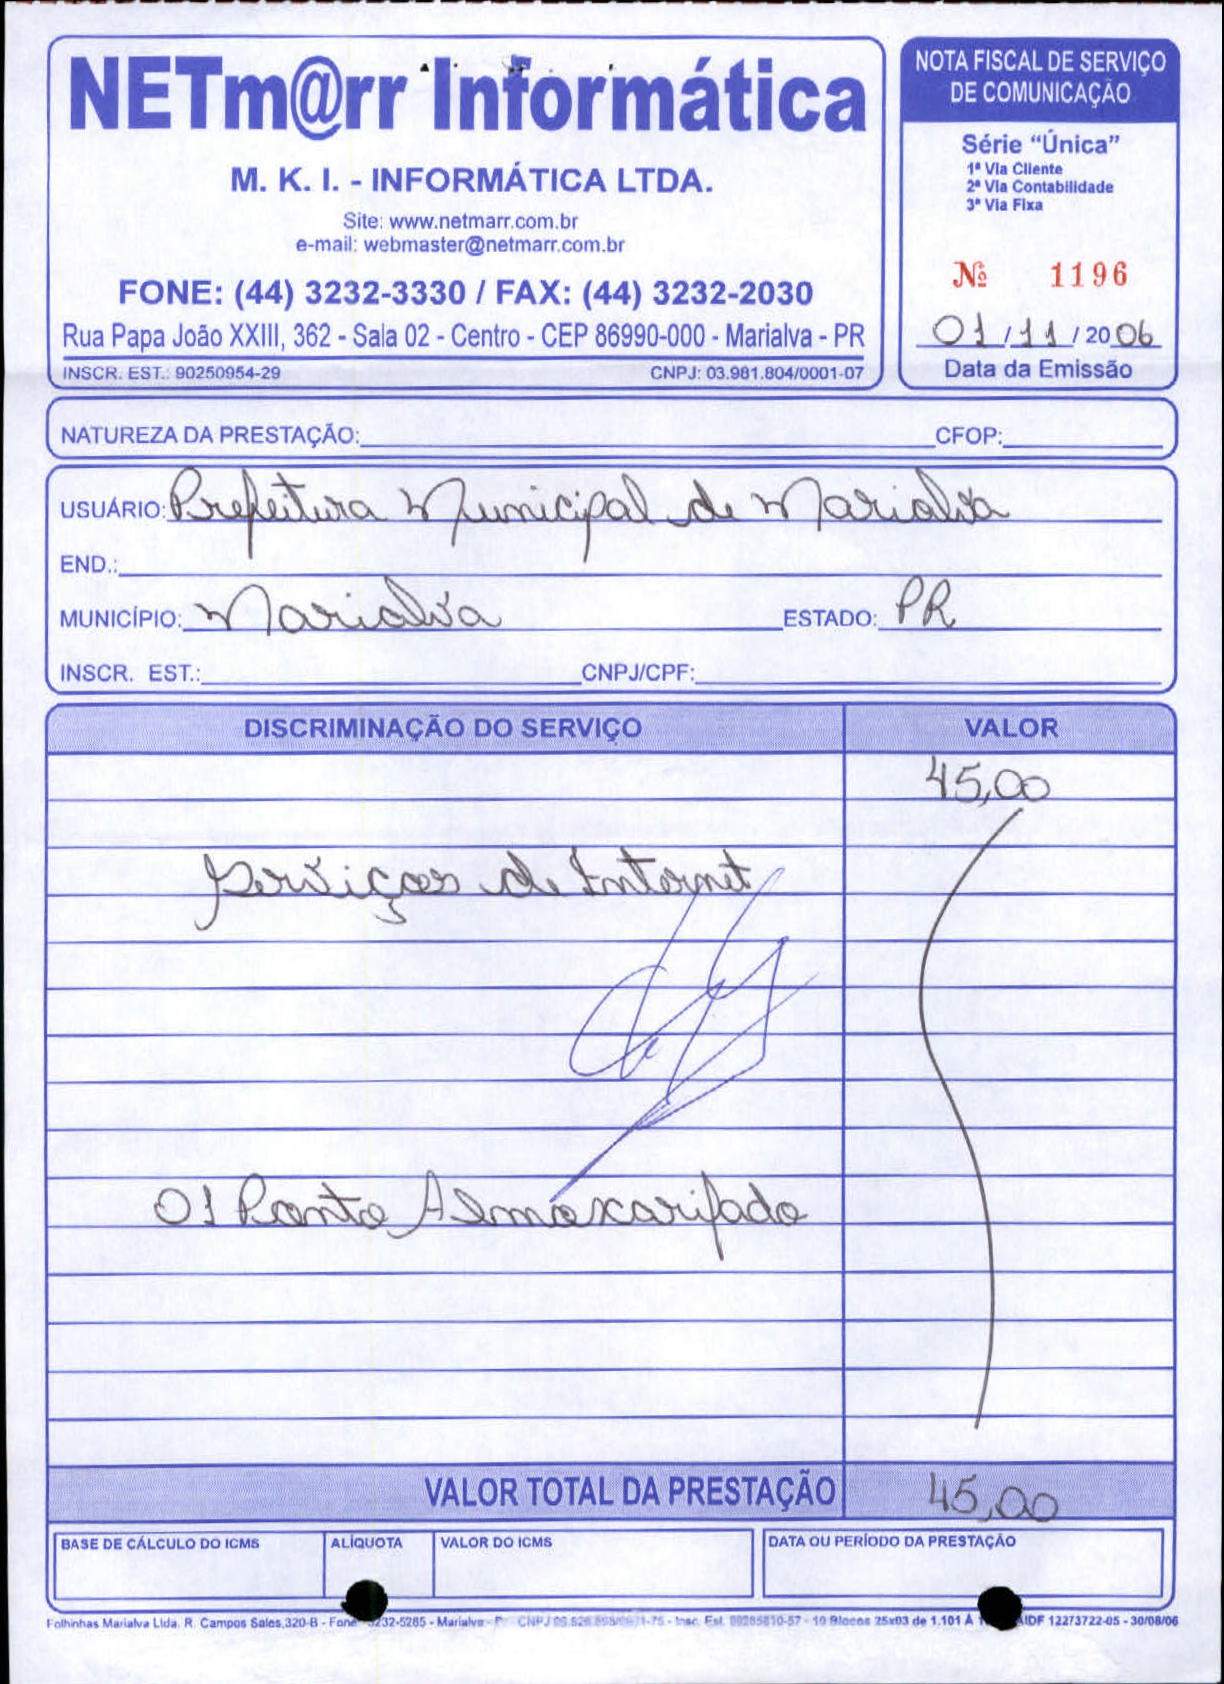 NETm@rr Informática
M. K. I. - INFORMÁTICA LTDA.
Site: www.netmarr.com.br
e-mail: webmaster@netmarr.com.br
FONE: (44) 3232-3330 / FAX: (44) 3232-2030
Rua Papa João XXIII, 362 - Sala 02 - Centro - CEP 86990-000 - Marialva - PR
INSCR. EST.: 90250954-29 CNPJ: 03.981.804/0001-07
NOTA FISCAL DE SERVIÇO
DE COMUNICAÇÃO
Série “Única”
1ª Via Cliente
2ª Via Contabilidade
3ª Via Fixa
Nº 1196
01/11/2006
Data da Emissão
NATUREZA DA PRESTAÇÃO: CFOP:
USUÁRIO: Prefeitura Municipal de Marialva
END.:
MUNICÍPIO: Marialva ESTADO: PR
INSCR. EST.: CNPJ/CPF:
DISCRIMINAÇÃO DO SERVIÇO VALOR
45,00
Serviços de Internet
01 Ponto Almoxarifado
VALOR TOTAL DA PRESTAÇÃO 45,00
BASE DE CÁLCULO DO ICMS ALÍQUOTA VALOR DO ICMS DATA OU PERÍODO DA PRESTAÇÃO
Folhinhas Marialva Ltda. R. Campos Sales,320-B - Fone 232-5285 - Marialva - CNPJ - Insc. Est. - 10 Blocos 25x03 de 1.101 À AIDF 12273722-05 - 30/08/06